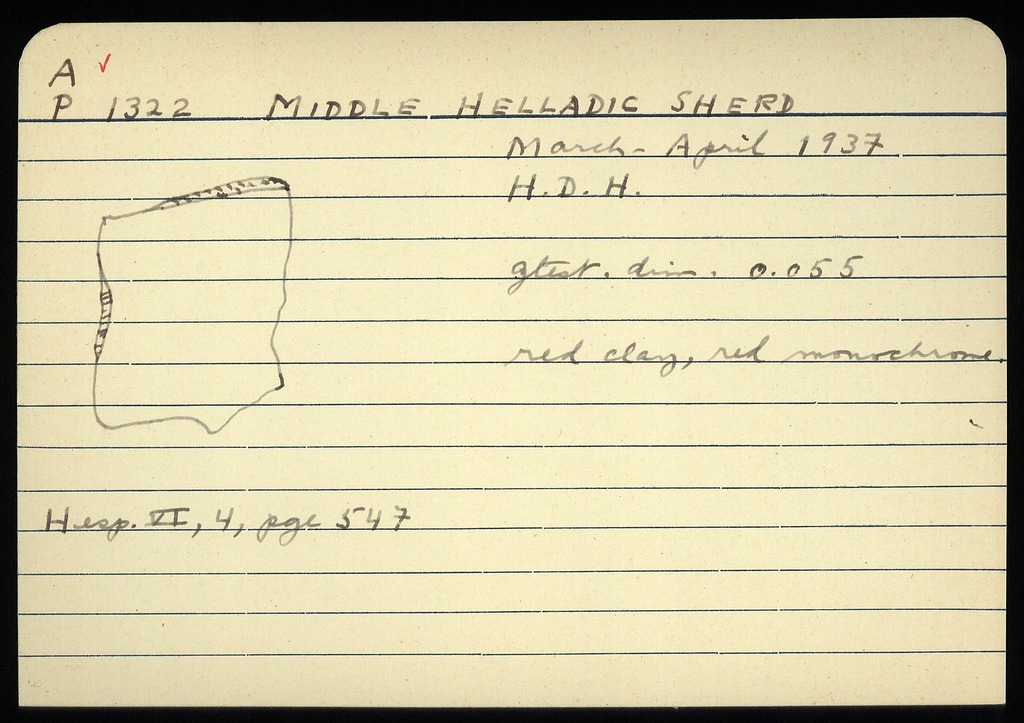 A ✓
P 1322 MIDDLE HELLADIC SHERD
March - April 1937
H.D.H.
gtest. dim. 0.055
red clay, red monochrome.
Hesp. VI, 4, pge 547